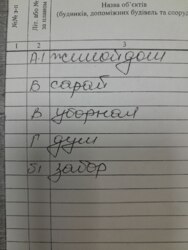 №№ з-п
Літ. або №
за планом
Назва об'єктів
(будинків, допоміжних будівель та споруд
1 2 3
А-1 жилой дом
Б сарай
В уборная
Г душ
§1 забор